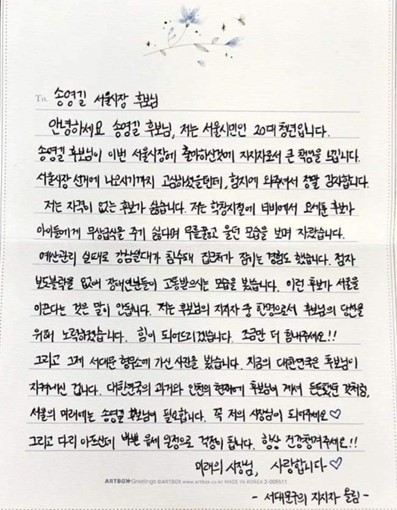 To. 송영길 서울시장 후보님
안녕하세요 송영길 후보님, 저는 서울시민인 20대 청년입니다.
송영길 후보님이 이번 서울시장에 출마하신것에 지지자로서 큰 책임을 느낍니다.
서울시장 선거에 나오시기까지 고심하셨을텐데, 험지에 와주셔서 정말 감사합니다.
저는 자격이 없는 후보가 싫습니다. 저는 학창시절에 티비에서 오세훈 후보가
아이들에게 무상급식을 주기 싫다며 무릎꿇고 울던 모습을 보며 자랐습니다.
예산관리 실패로 강남일대가 침수돼 집근처가 잠기는 경험도 했습니다. 점자
보도블럭을 없애 장애인분들이 고통받으시는 모습을 봤습니다. 이런 후보가 서울을
이끈다는 것은 말이 안됩니다. 저는 후보님의 지지자 중 한명으로서 후보님의 당선을
위해 노력하겠습니다. 힘이 되어드리겠습니다. 조금만 더 힘내주세요!!
그리고 그제 서대문 형무소에 가신 사진을 봤습니다. 지금의 대한민국은 후보님이
지켜내신 겁니다. 대한민국의 과거와 인천의 현재에 후보님이 계셔 든든했던 것처럼,
서울의 미래에는 송영길 후보님이 필요합니다. 꼭 저의 시장님이 되어주세요♡
그리고 다리 아프신데 바쁜 유세 일정으로 걱정이 됩니다. 항상 건강챙겨주세요!!
미래의 시장님, 사랑합니다♡
ARTBOX Greetings ©ARTBOX www.artbox.co.kr MADE IN KOREA
- 서대문구의 지지자 올림 -